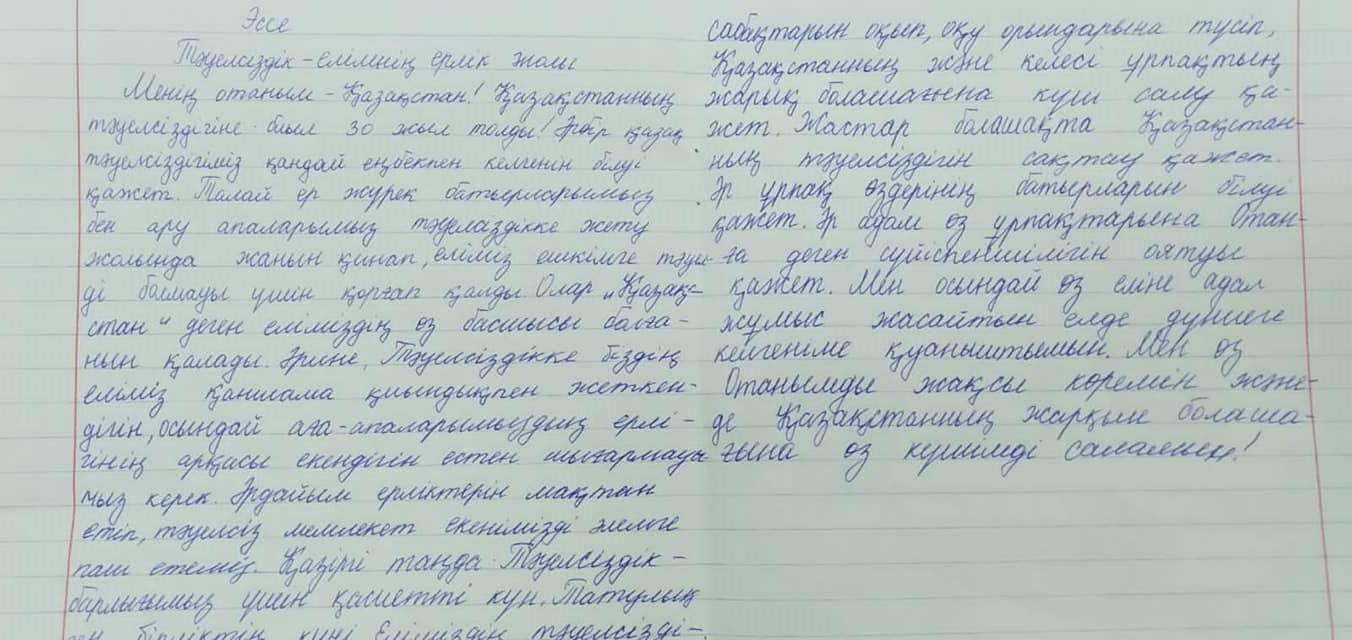 Эссе
Тәуелсіздік - елімнің ерлік жолы
Менің отаным - Қазақстан! Қазақстанның
тәуелсіздігіне биыл 30 жыл толды! Әрбір қазақ
тәуелсіздігіміз қандай еңбекпен келгенін білуі
қажет. Талай ер жүрек батырларымыз
бен ару апаларымыз тәуелсіздікке жету
жолында жанын қинап, еліміз ешкімге тәуел
ді болмауы үшін қорғап қалды. Олар „Қазақ-
стан“ деген еліміздің өз басшысы болға-
нын қалады. Әрине, Тәуелсіздікке біздің
еліміз қаншама қиындықпен жеткен-
дігін, осындай аға-апаларымыздың ерлі-
гінің арқасы екендігін естен шығармауы
мыз керек. Әрдайым ерліктерін мақтан
етіп, тәуелсіз мемлекет екенімізді әлемге
паш етеміз. Қазіргі таңда Тәуелсіздік -
барлығымыз үшін қасиетті күн. Татулық
пен бірліктің күні. Еліміздің тәуелсізді-
сабақтарын оқып, оқу орындарына түсіп,
Қазақстанның және келесі ұрпақтың
жарық болашағына күш салу қа-
жет. Жастар болашақта Қазақстан-
ның тәуелсіздігін сақтау қажет.
Әр ұрпақ өздерінің батырларын білуі
қажет. Әр адам өз ұрпақтарына Отан-
ға деген сүйіспеншілігін оятуы
қажет. Мен осындай өз еліне адал
жұмыс жасайтын елде дүниеге
келгеніме қуаныштымын. Мен өз
Отанымды жақсы көремін және-
де Қазақстанның жарқын болаша-
ғына өз күшімді саламын!